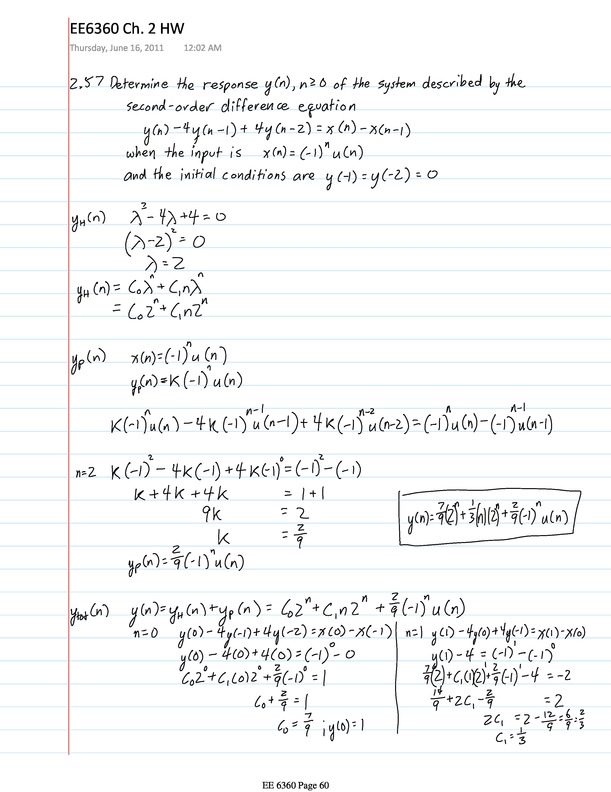 EE6360 Ch. 2 HW
Thursday, June 16, 2011 12:02 AM
2.57 Determine the response y(n), n≥0 of the system described by the
second-order difference equation
y(n) - 4y(n-1) + 4y(n-2) = x(n) - x(n-1)
when the input is x(n) = (-1)ⁿ u(n)
and the initial conditions are y(-1) = y(-2) = 0
y_H(n) λ³ - 4λ + 4 = 0
(λ-2)² = 0
λ = 2
y_H(n) = C₀λⁿ + C₁nλⁿ
= C₀2ⁿ + C₁n2ⁿ
y_p(n) x(n) = (-1)ⁿ u(n)
y_p(n) = K(-1)ⁿ u(n)
K(-1)ⁿu(n) - 4K(-1)ⁿ⁻¹u(n-1) + 4K(-1)ⁿ⁻²u(n-2) = (-1)ⁿu(n) - (-1)ⁿ⁻¹u(n-1)
n=2 K(-1)² - 4K(-1) + 4K(-1)⁰ = (-1)² - (-1)
K + 4K + 4K = 1 + 1
9K = 2
K = 2/9
y_p(n) = 2/9(-1)ⁿ u(n)
y(n) = 7/9(2)ⁿ + 1/3(n)(2)ⁿ + 2/9(-1)ⁿ u(n)
y_tot(n) y(n) = y_H(n) + y_p(n) = C₀2ⁿ + C₁n2ⁿ + 2/9(-1)ⁿ u(n)
n=0 y(0) - 4y(-1) + 4y(-2) = x(0) - x(-1)
y(0) - 4(0) + 4(0) = (-1)⁰ - 0
C₀2⁰ + C₁(0)2⁰ + 2/9(-1)⁰ = 1
C₀ + 2/9 = 1
C₀ = 7/9 ; y(0) = 1
n=1 y(1) - 4y(0) + 4y(-1) = x(1) - x(0)
y(1) - 4 = (-1)¹ - (-1)⁰
7/9(2) + C₁(1)(2)¹ + 2/9(-1)¹ - 4 = -2
14/9 + 2C₁ - 2/9 = 2
2C₁ = 2 - 12/9 = 6/9 = 2/3
C₁ = 1/3
EE 6360 Page 60